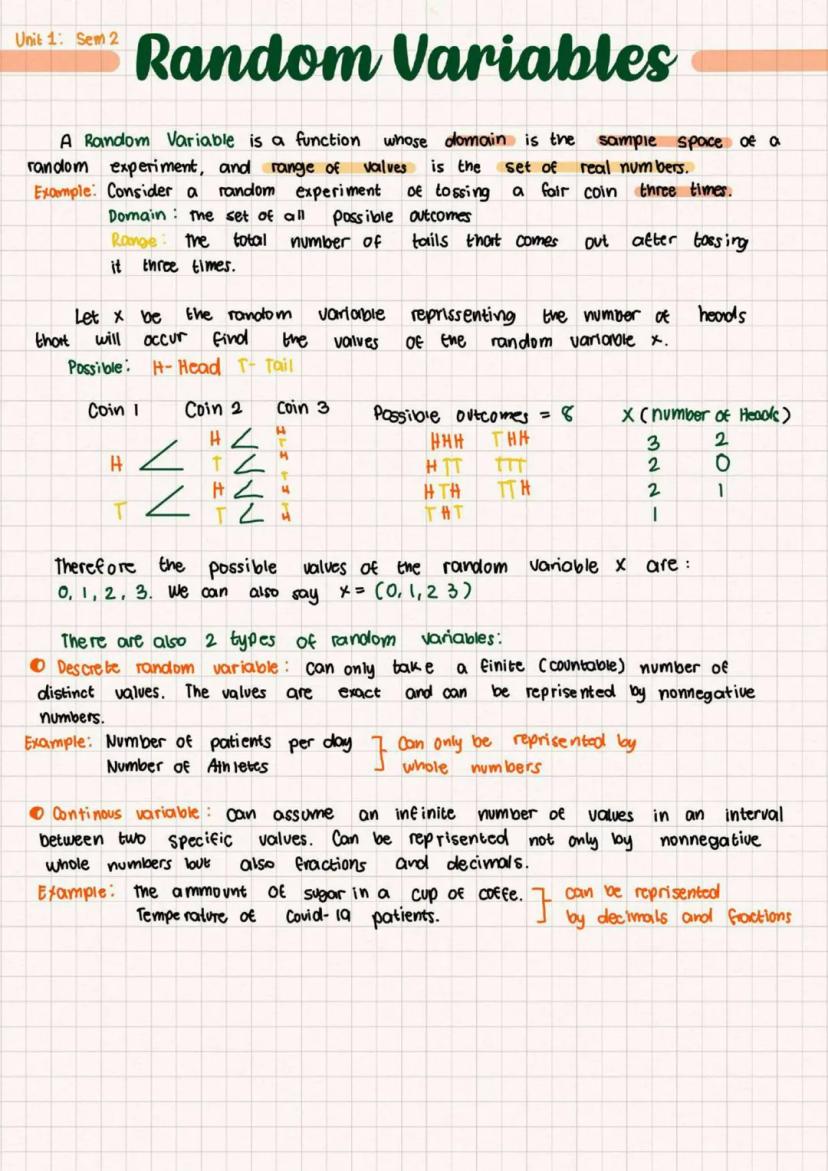 Unit 1: Sem 2
Random Variables
A Random Variable is a function whose domain is the sample space of a
random experiment, and range of values is the set of real numbers.
Example: Consider a random experiment of tossing a fair coin three times.
Domain: the set of all possible outcomes
Range: the total number of tails that comes out after tossing
it three times.
Let x be the random variable reprissenting the number of heads
that will occur find the values of the random variable x.
Possible: H- Head T- Tail
Coin 1 Coin 2 Coin 3 Possible outcomes = 8 X (number of Heads)
H H H T HHH THH 3 2
T H T HTT TTT 2 0
H H HTH TTH 2 1
T T H THT 1
Therefore the possible values of the random variable X are:
0, 1, 2, 3. We can also say x = (0, 1, 2 3)
There are also 2 types of random variables:
Descrete random variable: can only take a finite (countable) number of
distinct values. The values are exact and can be reprisented by nonnegative
numbers.
Example: Number of patients per day ] Can only be reprisented by
Number of Athletes whole numbers
Continous variable: can assume an infinite number of values in an interval
between two specific values. Can be reprisented not only by nonnegative
whole numbers but also fractions and decimals.
Example: the ammount of sugar in a cup of coffe. ] can be reprisented
Temperature of Covid-19 patients. by decimals and fractions